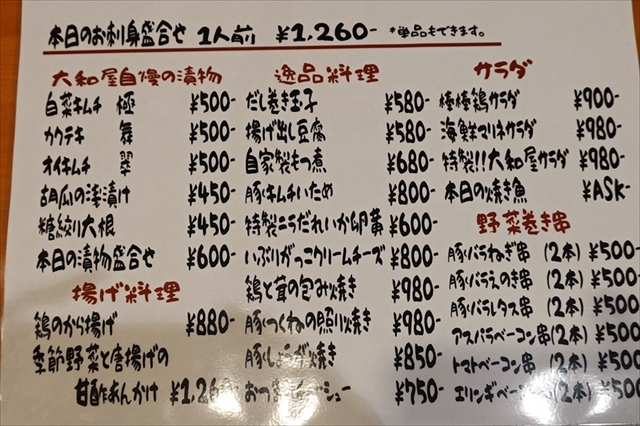 本日のお刺身盛合せ 1人前 ¥1,260- *単品もできます。
大和屋自慢の漬物
白菜キムチ 極 ¥500-
カクテキ 舞 ¥500-
オイキムチ 翠 ¥500-
胡瓜の浅漬け ¥450-
糖絞り大根 ¥450-
本日の漬物盛合せ ¥600-
揚げ料理
鶏のから揚げ ¥880-
季節野菜と唐揚げの
甘酢あんかけ ¥1,26
逸品料理
だし巻き玉子 ¥580-
揚げ出し豆腐 ¥580-
自家製もつ煮 ¥680-
豚キムチいため ¥800-
特製ニラだれいか卵黄 ¥600-
いぶりがっこクリームチーズ ¥800-
鶏と茸の包み焼き ¥980-
豚つくねの照り焼き ¥980-
豚しょうが焼き ¥850-
おつ ーシュー ¥750-
サラダ
棒棒鶏サラダ ¥900-
海鮮マリネサラダ ¥980-
特製!!大和屋サラダ ¥980-
本日の焼き魚 ¥ASK-
野菜巻き串
豚バラねぎ串 (2本) ¥500-
豚バラえのき串 (2本) ¥500
豚バラレタス串 (2本) ¥500
アスパラベーコン串(2本) ¥500
トマトベーコン串(2本) ¥500
エリンギベー (2本) ¥500